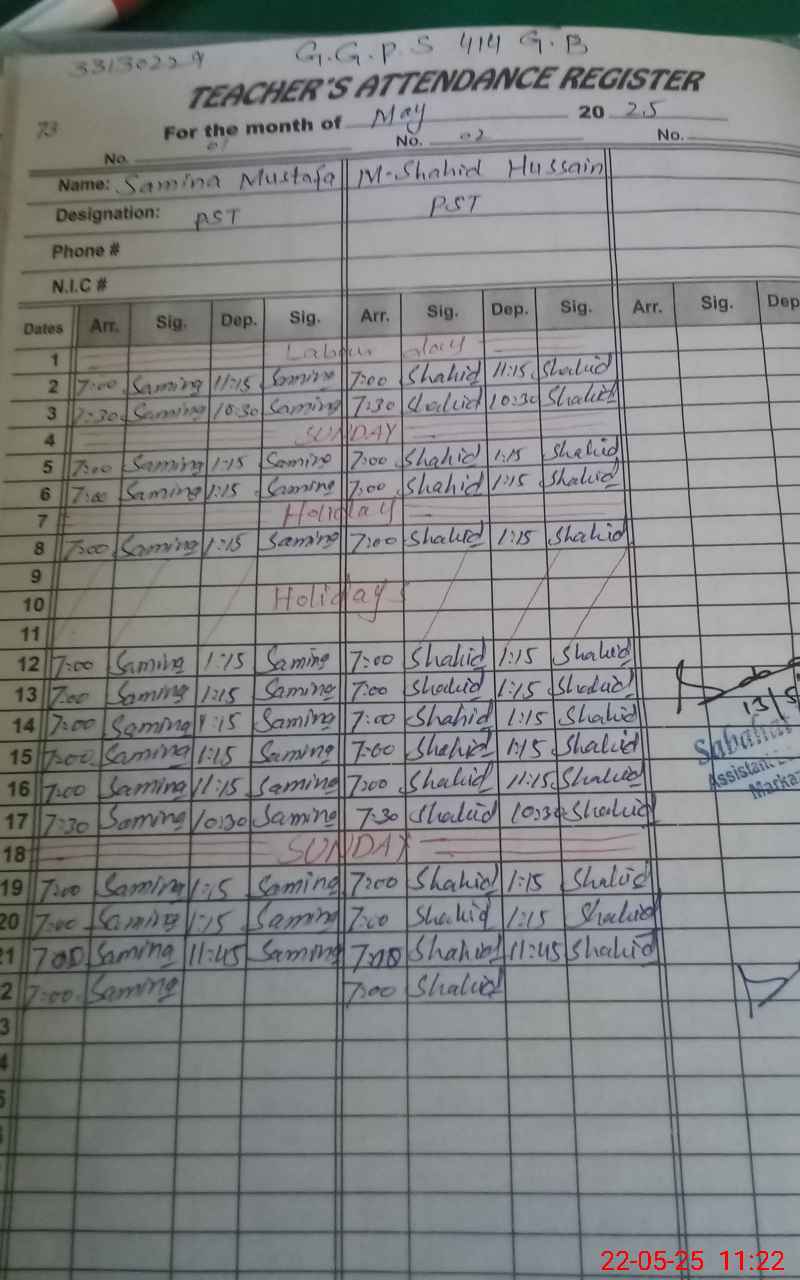 33130229 G.G.P.S 414 G.B
TEACHER'S ATTENDANCE REGISTER
73 For the month of May 20 25
No. 01 No. 02 No.
Name: Samina Mustafa M. Shahid Hussain
Designation: PST PST
Phone #
N.I.C #
Dates Arr. Sig. Dep. Sig. Arr. Sig. Dep. Sig. Arr. Sig. Dep
1 Labour day
2 7:00 Samina 11:15 Samina 7:00 Shahid 11:15 Shahid
3 7:30 Samina 10:30 Samina 7:30 Shahid 10:30 Shahid
4 SUNDAY
5 7:00 Samina 1:15 Samina 7:00 Shahid 1:15 Shahid
6 7:00 Samina 1:15 Samina 7:00 Shahid 1:15 Shahid
7 Holiday
8 7:00 Samina 1:15 Samina 7:00 Shahid 1:15 Shahid
9
10 Holidays
11
12 7:00 Samina 1:15 Samina 7:00 Shahid 1:15 Shahid
13 7:00 Samina 1:15 Samina 7:00 Shahid 1:15 Shahid
14 7:00 Samina 1:15 Samina 7:00 Shahid 1:15 Shahid 13/5
15 7:00 Samina 1:15 Samina 7:00 Shahid 1:15 Shahid
16 7:00 Samina 11:15 Samina 7:00 Shahid 11:15 Shahid Assistant
17 7:30 Samina 10:30 Samina 7:30 Shahid 10:30 Shahid Marka
18 SUNDAY
19 7:00 Samina 1:15 Samina 7:00 Shahid 1:15 Shahid
20 7:00 Samina 1:15 Samina 7:00 Shahid 1:15 Shahid
21 7:00 Samina 11:45 Samina 7:00 Shahid 11:45 Shahid
2 7:00 Samina 7:00 Shahid
3
4
22-05-25 11:22